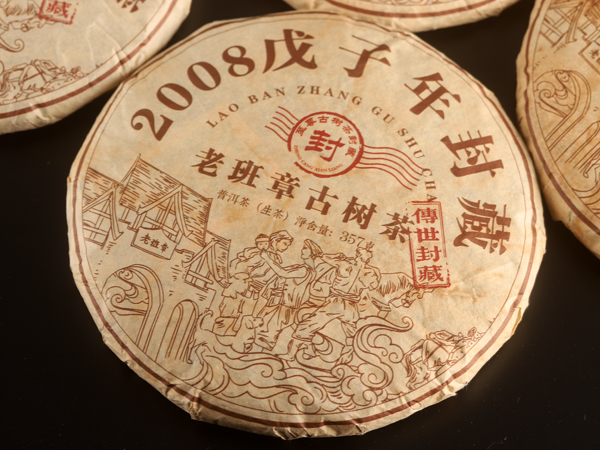 2008戊子年封藏
LAO BAN ZHANG GU SHU CHA
封
老班章古树茶
普洱茶（生茶）净含量：357克
傳世封藏
老班章
藏